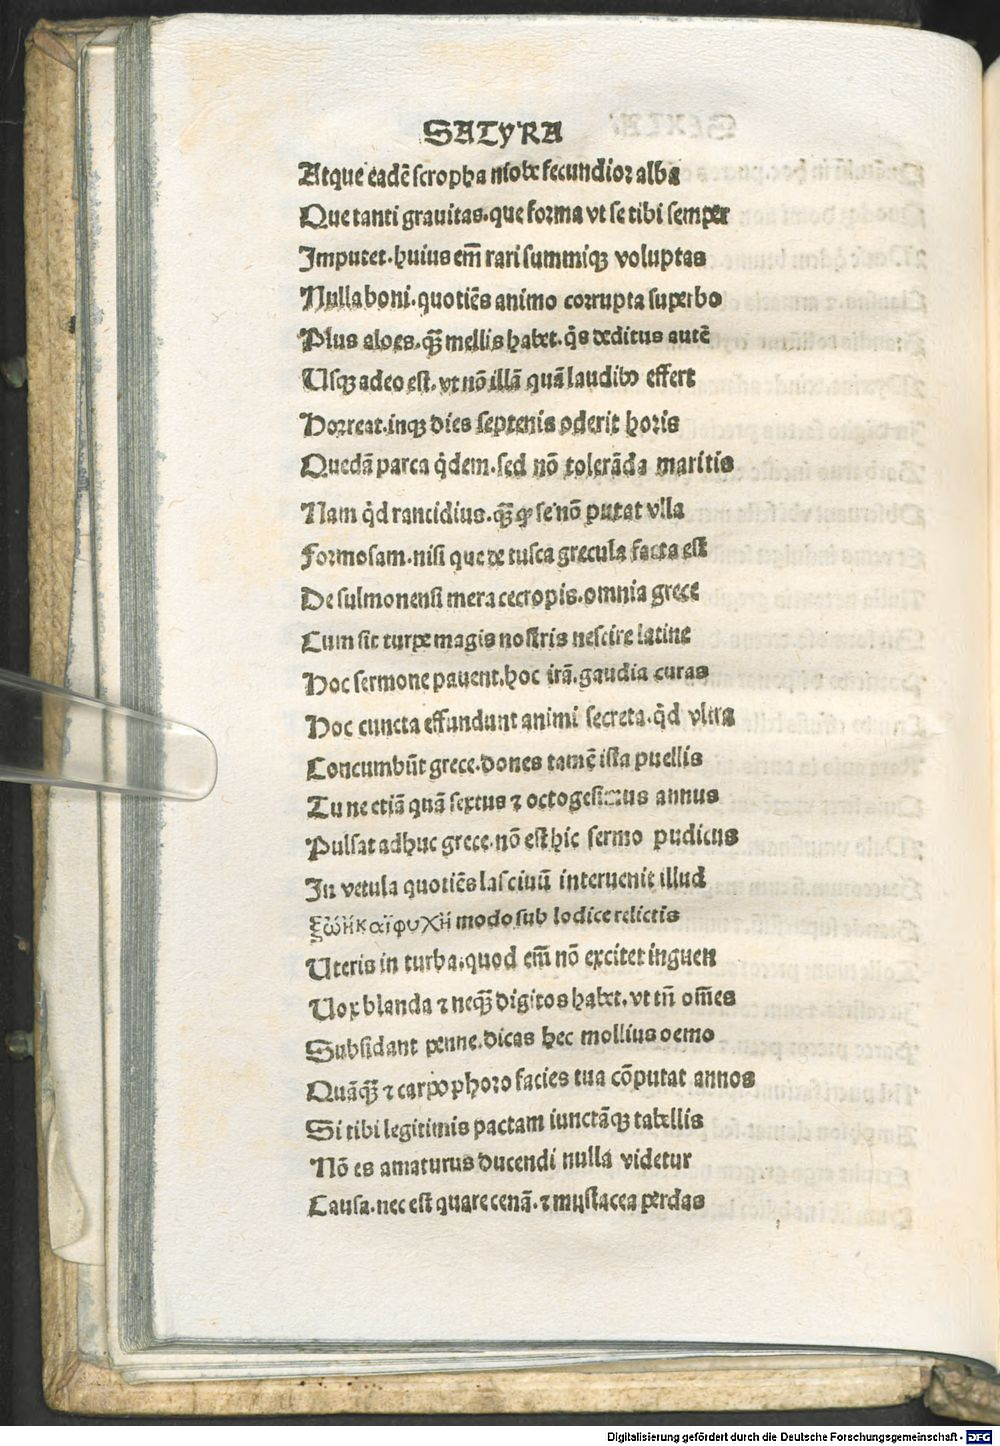 SATYRA
Atque eadē scropha niobe fecundior alba
Que tanti grauitas. que forma vt se tibi semper
Imputet. huius em̄ rari summiqꝫ voluptas
Nulla boni. quotiēs animo corrupta superbo
Plus aloes. qꝫ̄ mellis habet. q̇s deditus autē
Usqꝫ adeo est. vt nō illā quā laudibꝰ effert
Horreat. inqꝫ dies septenis oderit horis
Quedā parca q̇dem. sed nō tolerāda maritis
Nam q̇d rancidius. qꝫ̄ ꝙ se nō putat vlla
Formosam. nisi que de tusca grecula facta est
De sulmonensi mera cecropis. omnia grece
Cum sit turpe magis nostris nescire latine
Hoc sermone pauent. hoc irā. gaudia curas
Hoc cuncta effundunt animi secreta. q̇d vltra
Concumbūt grece. dones tamē ista puellis
Tu ne etiā quā sextus ⁊ octogesimus annus
Pulsat adhuc grece. nō est hic sermo pudicus
In vetula quotiēs lasciuū interuenit illud
ξώὴκαϊφυχὴ modo sub lodice relictis
Uteris in turba. quod em̄ nō excitet inguen
Uox blanda ⁊ neqꝫ̄ digitos habet. vt tn̄ om̄es
Subsidant penne. dicas hec mollius oemo
Quāqꝫ̄ ⁊ carpophoro facies tua cōputat annos
Si tibi legitimis pactam iunctāqꝫ tabellis
Nō es amaturus ducendi nulla videtur
Causa. nec est quare cenā. ⁊ mustacea perdas
Digitalisierung gefördert durch die Deutsche Forschungsgemeinschaft - DFG